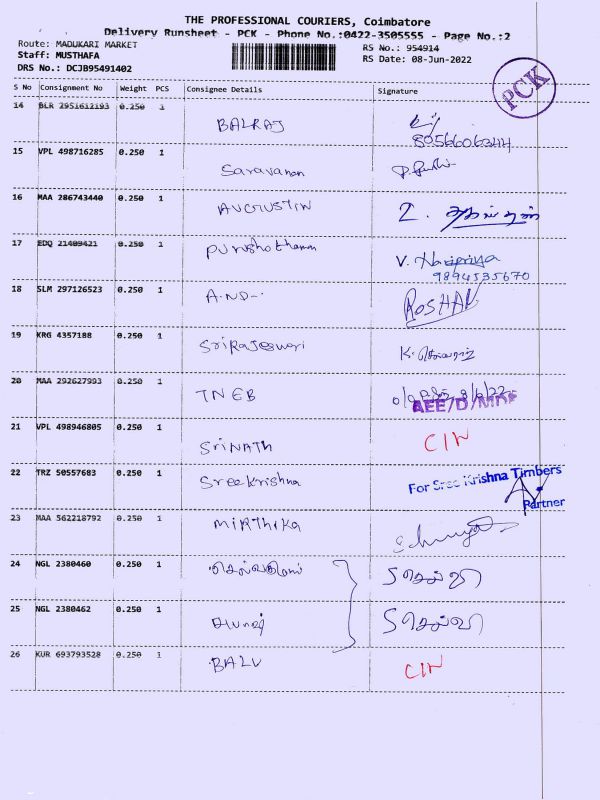 THE PROFESSIONAL COURIERS, Coimbatore
Delivery Runsheet - PCK - Phone No.:0422-3505555 - Page No.:2
Route: MADUKARI MARKET
RS No.: 954914
Staff: MUSTHAFA
RS Date: 08-Jun-2022
DRS No.: DCJB95491402
PCK
S No Consignment No Weight PCS Consignee Details Signature
14 BLR 2951612193 0.250 1 BALRAJ
8056606344
15 VPL 498716285 0.250 1 Saravanan
16 MAA 286743440 0.250 1 AUGUSTIN
17 EDQ 21409421 0.250 1 Purushothaman V. Haripriya
9894535670
18 SLM 297126523 0.250 1 A.ND-. ROSHAN
19 KRG 4357188 0.250 1 SriRajeswari
20 MAA 292627993 0.250 1 TNEB
AEE/D/MKF
21 VPL 498946805 0.250 1 SRINATH CIN
22 TRZ 50557683 0.250 1 Sree Krishna For Sree Krishna Timbers
Partner
23 MAA 562218792 0.250 1 MIRTHIKA
24 NGL 2380460 0.250 1 S செல்வி
25 NGL 2380462 0.250 1 S செல்வி
26 KUR 693793528 0.250 1 BALU CIN